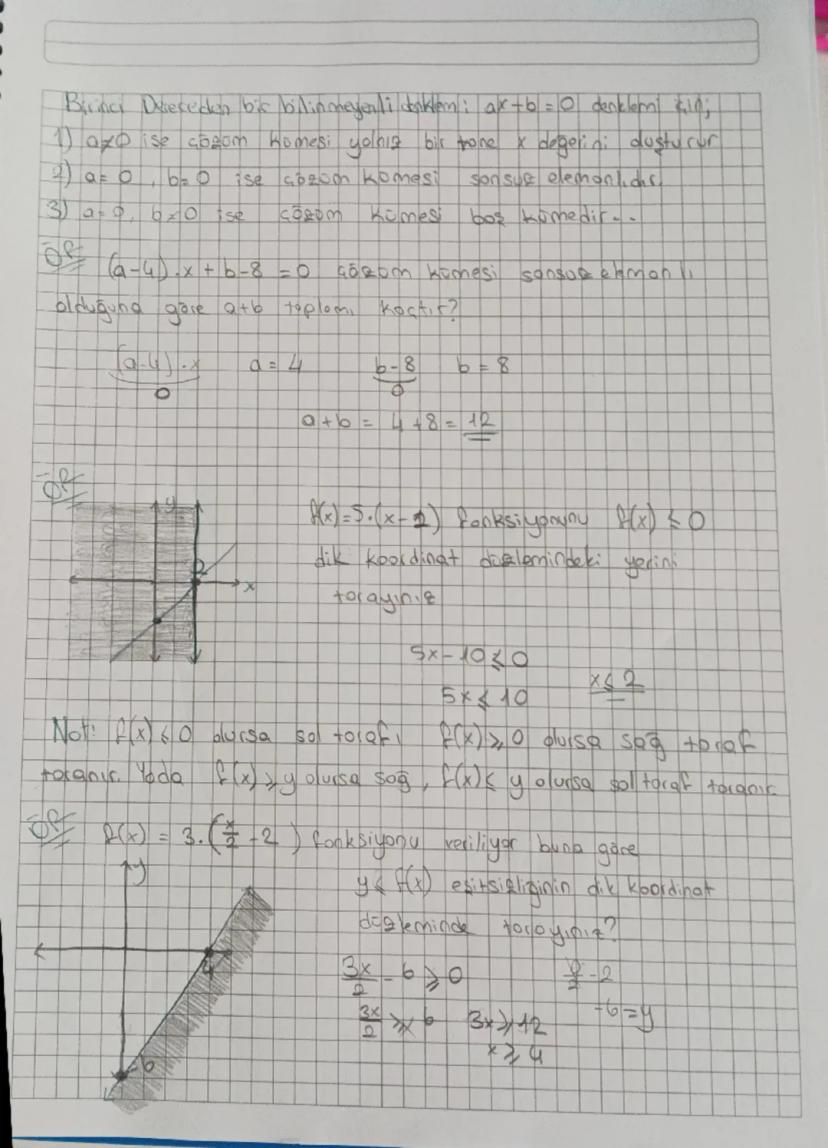 Birinci Dereceden bir bilinmeyenli denklem: ax+b=0 denklemi için;
1) a≠0 ise çözüm kümesi yalnız bir tane x değerini oluşturur
2) a=0, b=0 ise çözüm kümesi sonsuz elemanlıdır.
3) a=0, b≠0 ise çözüm kümesi boş kümedir..
ÖR (a-4).x+b-8=0 çözüm kümesi sonsuz elemanlı
olduğuna göre a+b toplamı kaçtır?
(a-4).x a=4 b-8 b=8
0 0
a+b = 4+8 = 12
ÖR
y
f(x)=5.(x-2) fonksiyonunu f(x) ≤ 0
dik koordinat düzlemindeki yerini
2
x
tarayınız
5x-10≤0
5x≤10 x≤2
Not: f(x)≤0 olursa sol tarafı, f(x)≥0 olursa sağ taraf
taranır. Yada f(x)≥y olursa sağ, f(x)≤y olursa sol taraf taranır
ÖR f(x) = 3.(x/2-2) fonksiyonu veriliyor buna göre
y
y≤f(x) eşitsizliğinin dik koordinat
düzleminde tarayınız?
4
3x/2 - 6 ≥ 0 0/2-2
3x/2 ≥ 6 3x≥12 -6=y
x≥4
-6